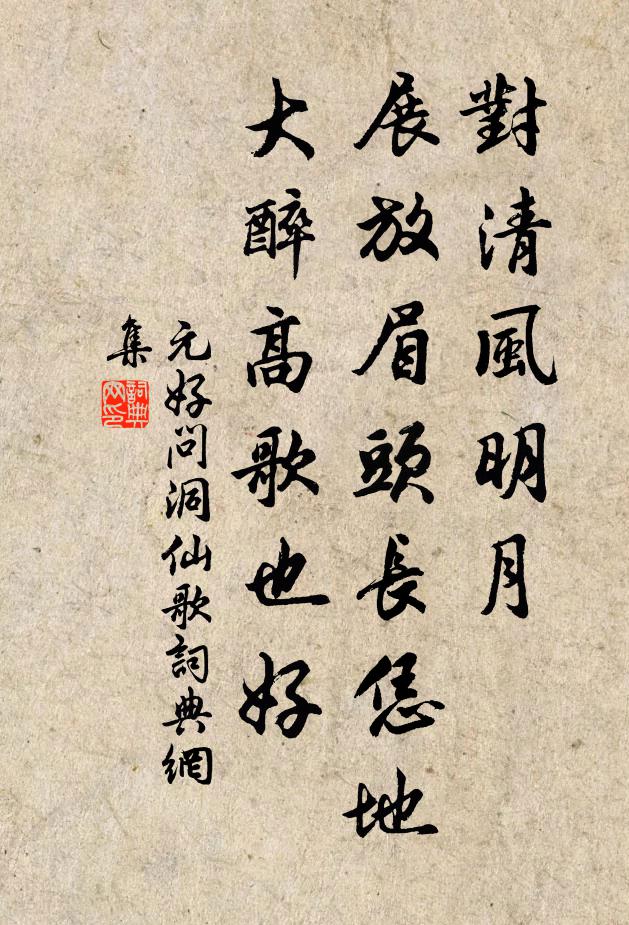 對清風明月
展放眉頭長恁地
大醉高歌也好
元好問洞仙歌詞典網
集
詞典
网印